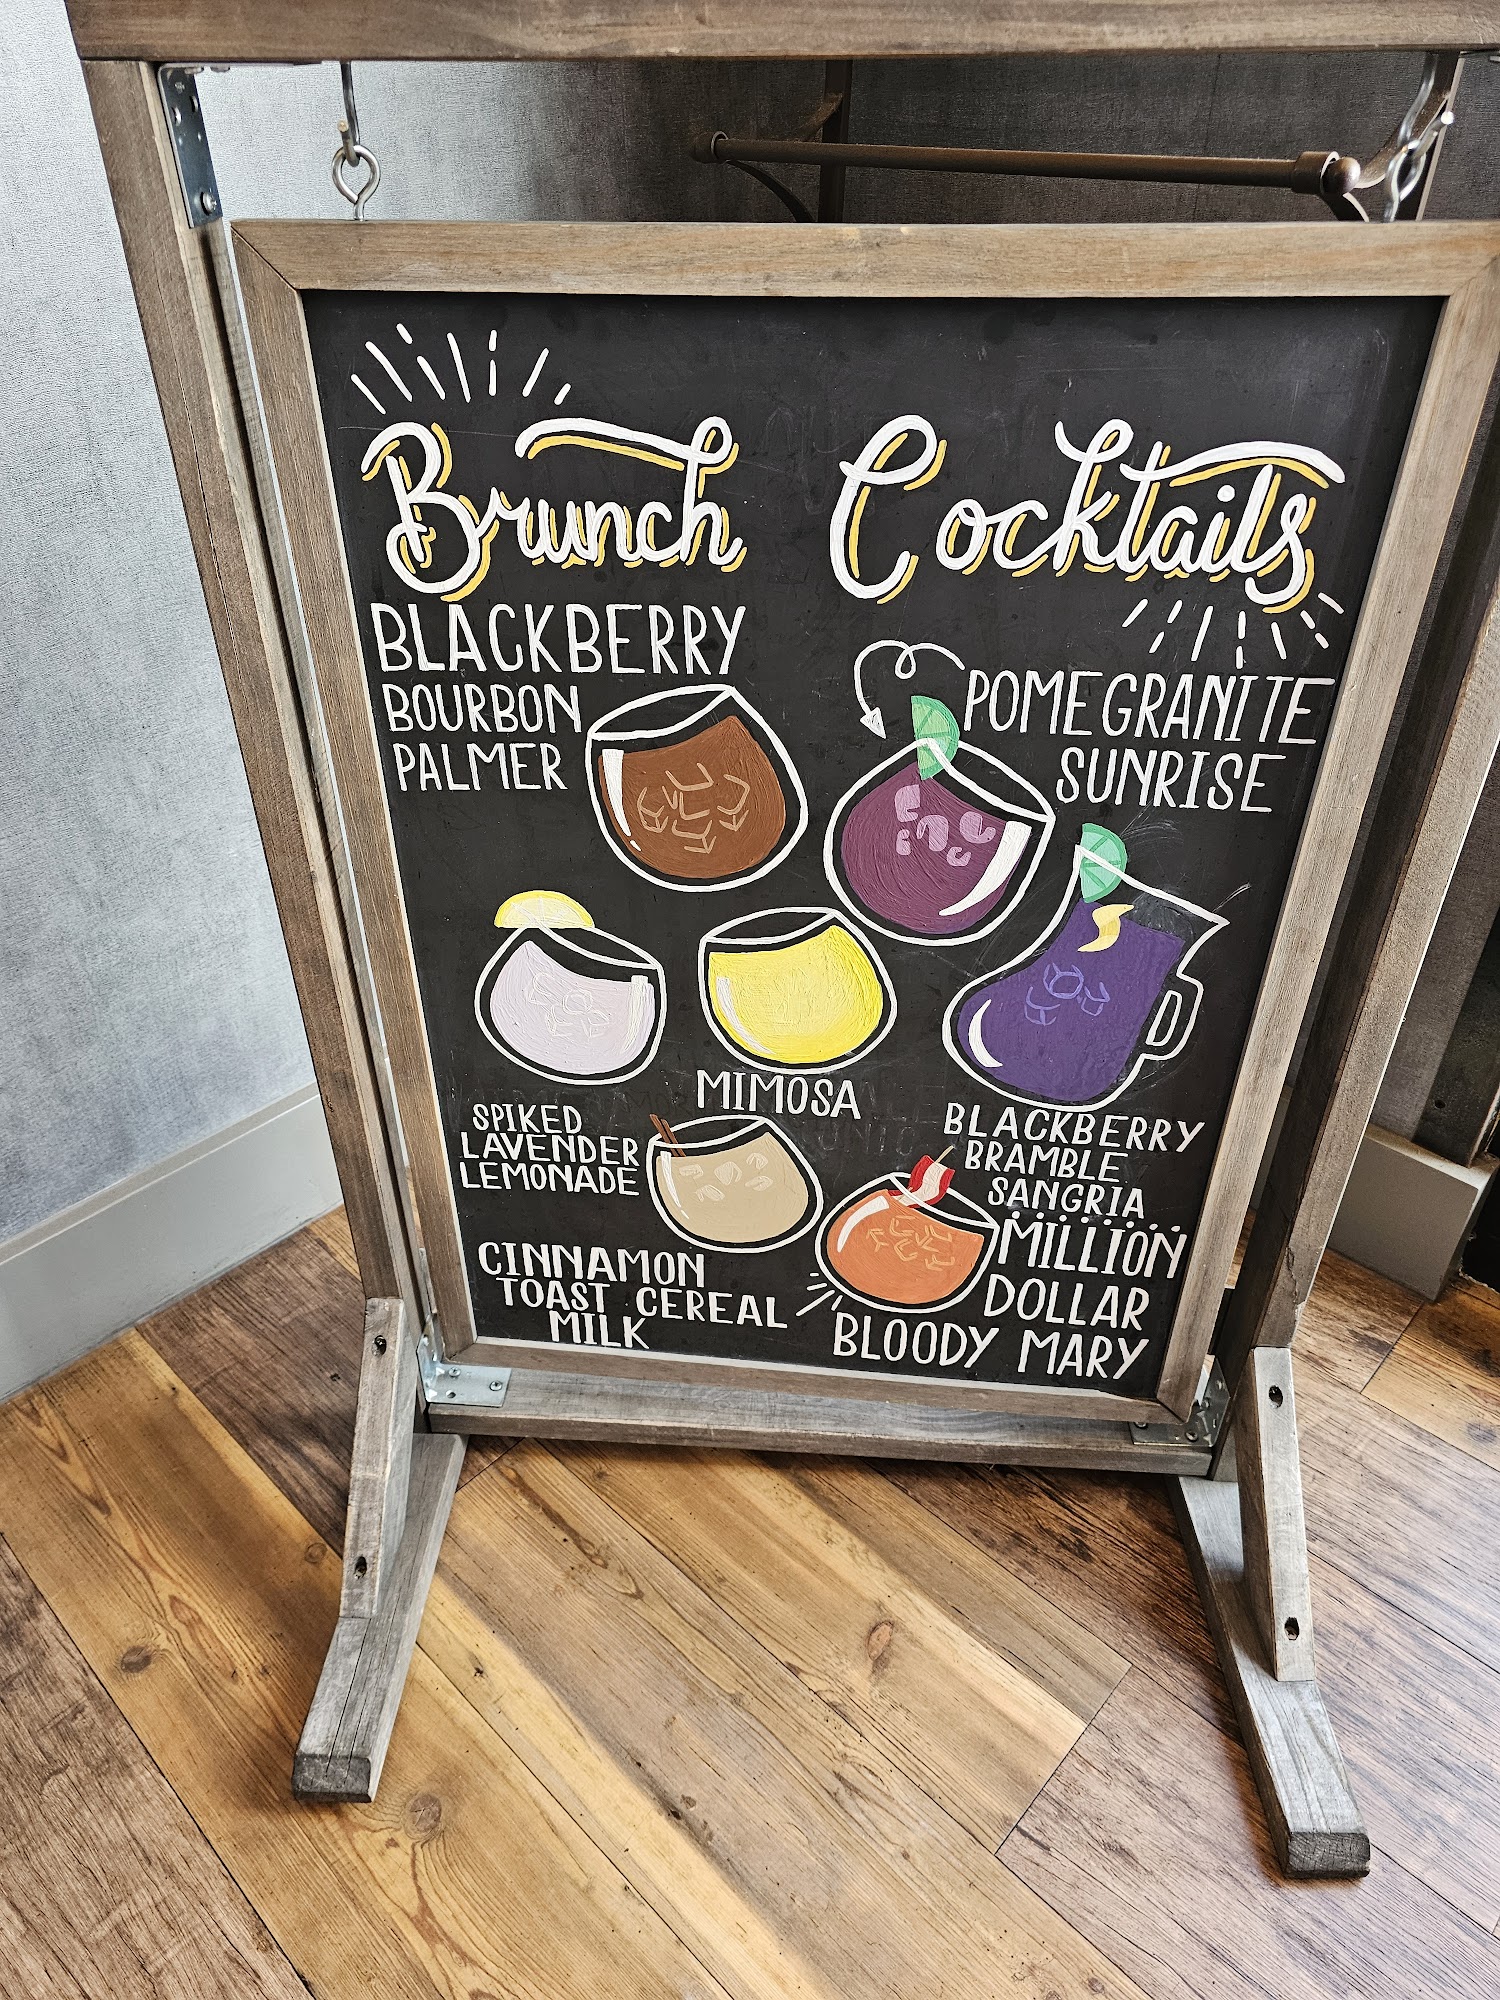 Brunch Cocktails
BLACKBERRY
BOURBON
PALMER
POMEGRANITE
SUNRISE
SPIKED
LAVENDER
LEMONADE
MIMOSA
BLACKBERRY
BRAMBLE
SANGRIA
CINNAMON
TOAST CEREAL
MILK
MILLION
DOLLAR
BLOODY MARY